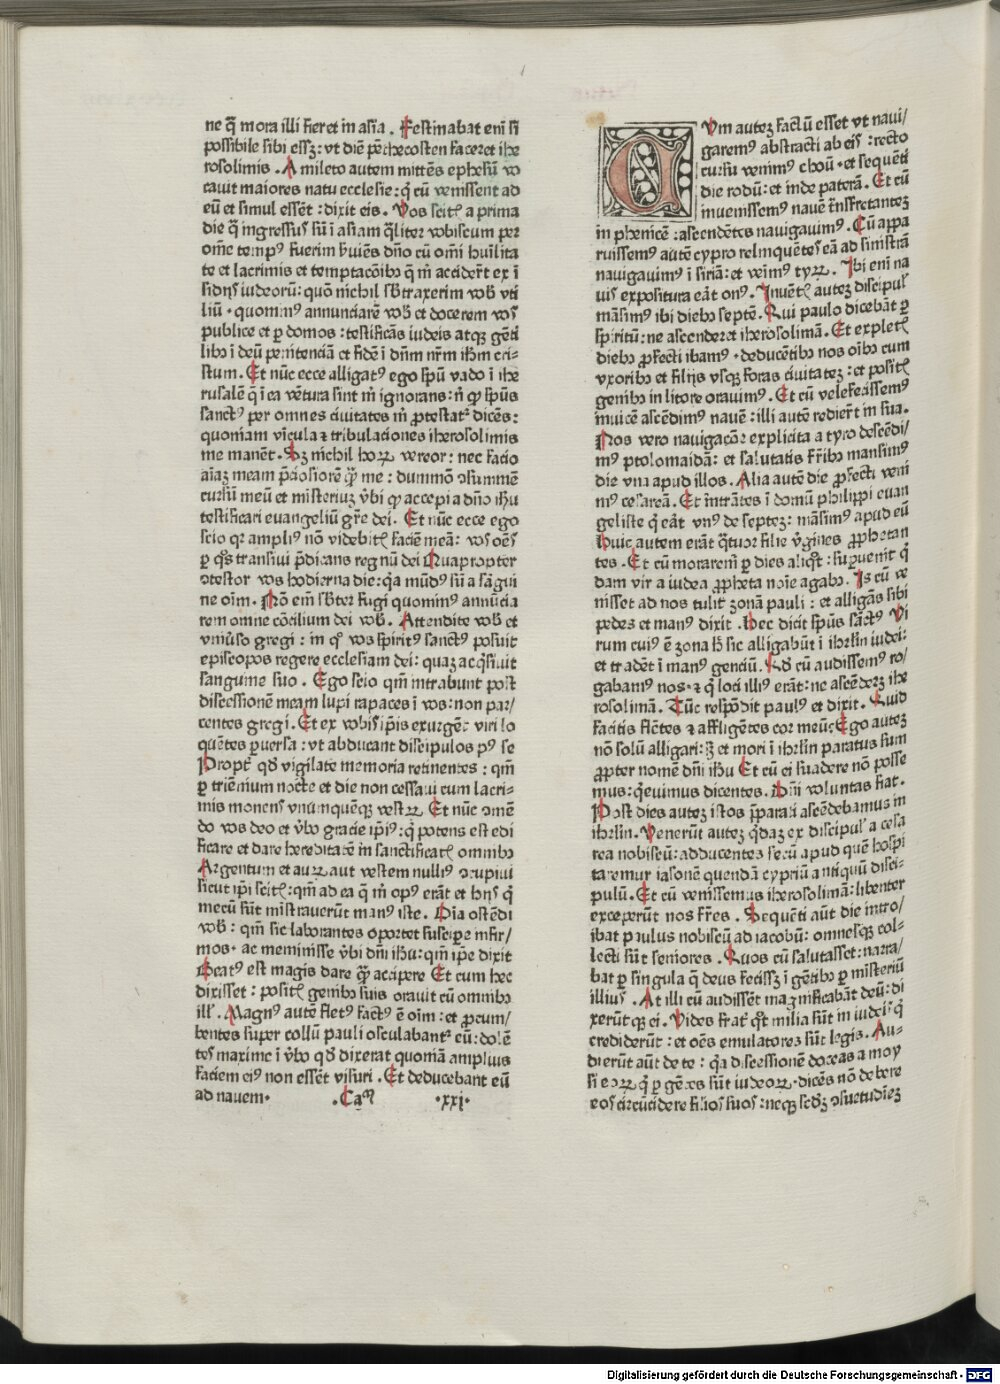 ne q̃ mora illi fieret in asia . Festinabat eni᷑ si
possibile sibi essꝫ : vt diē pēthecosten faceret ihe
rosolimis . A mileto autem mittēs ephesū vo
cauit maiores natu ecclesie : q̇ cū venissent ad
eū et simul essēt : dixit eis . Vos scitꝭ a prima
die q̄ ingressus sū ī asiam q̄liter vobiscum per
om̄e tempꝰ fuerim ẜuiēs dn̄o cū om̄i huīlita
te et lacrimis et temptacōibꝫ q̄ m̄ acciderūt ex ī
sidijs iudeorū : quō nichil sb̄traxerim vob̄ vti
liū · quominꝰ annunciarē vob̄ et docerem vos
publice et ꝑ domos : testificās iudeis atqꝫ gēti
libꝫ ī deū penitenciā et fidē ī dn̄m nr̄m ihm̄ cri-
stum . Et nūc ecce alligatꝰ ego spū vado ī ihe
rusalē q̄ ī ea vētura sint m̄ ignorans : n̄ qꝫ spūs
sanctꝰ per omnes ciuitates m̄ ꝓtestatꝛ dicēs :
quoniam vīcula ⁊ tribulaciones iherosolimis
me manēt . Sꝫ nichil hoꝝ vereor : nec facio
aīaꝫ meam p̄ciosiorē q̄ꝫ me : dummō ꝯsummē
cursū meū et misteriuꝫ v̄bi qꝫ accepi a dn̄o ihū
testificari euangeliū gr̄e dei . Et nūc ecce ego
scio qꝛ ampliꝰ nō videbitꝭ faciē meā : vos oēs
ꝑ q̊s transiui p̄dicans regnū dei Quapropter
ꝯtestor vos hodierna die : q̄a mūdꝰ sū a sāgui
ne oīm . Nō em̄ sb̄terfugi quominꝰ annūcia
rem omne cōcilium dei vob̄ . Attendite vob̄ et
vniuẜso gregi : in q̊ vos spiritꝰ sanctꝰ posuit
episcopos regere ecclesiam dei : quaꝫ acq̇siuit
sanguine suo . Ego scio qm̄ intrabunt post
discessionē meam lupi rapaces ī vos : non par/
centes gregi . Et ex vobis ip̄is exurgēt viri lo
quētes ꝑuersa : vt abducant discipulos pꝰ se
Propt̄ qd̄ vigilate memoria retinentes : qm̄
ꝑ triēnium nocte et die non cessaui cum lacri-
mis monens vnumquēqꝫ vestꝝ . Et nūc ꝯmē
do vos deo et v̄bo gracie ip̄iꝰ : q̇ potens est edi
ficare et dare hereditatē in sanctificatꝭ omnibꝫ
Argentum et auꝝ aut vestem nulliꝰ ꝯcupiui
sicut ip̄i scitꝭ : qm̄ ad ea q̄ m̄ opꝰ erāt et hijs q̇
mecū sūt mīstrauerūt manꝰ iste . Oīa ostēdi
vob̄ : qm̄ sic laborantes oportet suscipere infir/
mos · ac meminisse v̄bi dn̄i ihū : qm̄ ip̄e dixit
Beatꝰ est magis dare q̄ꝫ accipere Et cum hec
dixisset : positꝭ genibꝫ suis orauit cū omnibꝫ
ill̄ . Magnꝰ autē fletꝰ factꝰ ē oīm : et ꝓcum/
bentes super collū pauli osculabantꝛ eū : dolē
tes maxime ī v̄bo qd̄ dixerat quoniā amplius
faciem eiꝰ non essēt visuri . Et deducebant eū
ad nauem · . Ca᷑m · xxi ·
CVm auteꝫ factū esset vt naui/
garemꝰ abstracti ab eis : recto
cursu venimꝰ choū · et sequēti
die rodū : et inde paterā . Et cū
inuenissemꝰ nauē trāsfretanteꝫ
in phenicē : ascendētes nauigauimꝰ . Cū appa
ruissemꝰ autē cypro relinquētes eā ad sinistrā
nauigauimꝰ ī siriā : et venimꝰ tyꝝ . Ibi eni᷑ na
uis expositura eāt onꝰ . Inuētꝭ auteꝫ discipul̄
māsimꝰ ibi diebꝫ septē . Qui paulo dicebāt ꝑ
spiritū : ne ascenderet iherosolimā . Et expletꝭ
diebꝫ ꝓfecti ibamꝰ · deducētibꝫ nos oībꝫ cum
vxoribꝫ et filijs vsqꝫ foras ciuitateꝫ : et positꝭ
genibꝫ in litore orauimꝰ . Et cū velefecissemꝰ
inuicē ascēdimꝰ nauē : illi autē redierūt in sua .
Nos vero nauigacōe explicita a tyro descēdi/
mꝰ ptolomaidā : et salutatis fr̄ibꝫ mansimꝰ
die vna apud illos . Alia autē die ꝓfecti veni
mꝰ cesareā . Et intrātes ī domū philippi euan
geliste q̇ eāt vnꝰ de septeꝫ : māsimꝰ apud eū
Huic autem erāt q̄tuor filie v̄gines ꝓphetan
tes . Et cū moraremꝛ ꝑ dies aliq̊t : suꝑuenit q̇
dam vir a iudea ꝓpheta noīe agabꝫ . Is cū ve
nisset ad nos tulit zonā pauli : et alligās sibi
pedes et manꝰ dixit . Hec dicit spūs sanctꝰ Vi
rum cuiꝰ ē zona h̄ sic alligabūt ī ihrl̄m iudei :
et tradēt ī manꝰ genciū . Qd̄ cū audissemꝰ ro/
gabamꝰ nos · ⁊ q̇ loci illiꝰ erāt : ne ascēderꝫ ihe
rosolimā . Tūc respōdit paulꝰ et dixit . Quid
facitis flētes ⁊ affligētes cor meū : Ego auteꝫ
nō solū alligari : sꝫ et mori ī ihrl̄m paratus sum
ꝓpter nomē dn̄i ihū Et cū ei suadere nō posse
mus : q̇euimus dicentes . Dn̄i voluntas fiat .
Post dies auteꝫ istos p̄parati ascēdebamus in
ihrl̄m . Venerūt auteꝫ q̇daꝫ ex discipul̄ a cesa
rea nobiscū : adducentes secū apud quē hospi
taremur iasonē quendā cypriū antiquū disci-
pulū . Et cū venissemus iherosolimā : libenter
exceperūt nos fr̄es . Sequēti aūt die intro/
ibat paulus nobiscū ad iacobū : omnesqꝫ col-
lecti sūt seniores . Quos cū salutasset : narra/
bat ꝑ singula q̄ deus fecissꝫ ī gētibꝫ ꝑ misteriū
illius . At illi cū audissēt magnificabāt deū : di
xerūtqꝫ ei . Vides frat̄ q̊t milia sūt in iudeis q̇
crediderūt : et oēs emulatores sūt legis . Au-
dierūt aūt de te : q̄a discessionē doceas a moy
si eoꝝ q̇ ꝑ gētes sūt iudeoꝝ · dicēs nō debere
eos circūcidere filios suos : neqꝫ scd̄ꝫ ꝯsuetudīeꝫ
Digitalisierung gefördert durch die Deutsche Forschungsgemeinschaft - DFG